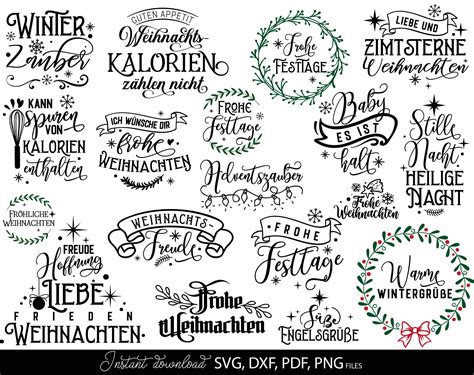 WINTER
Zauber
GUTEN APPETIT
Weihnachts
KALORIEN
zählen nicht
Frohe
FESTTAGE
LIEBE UND
ZIMTSTERNE
Weihnachten
KANN
spuren
VON
KALORIEN
enthalten
ICH WÜNSCHE DIR
frohe
WEIHNACHTEN
FROHE
Festtage
Baby
ES IST
kalt
Stille
Nacht
HEILIGE
NACHT
Adventszauber
Frohe
Weihnachten
FRÖHLICHE
WEIHNACHTEN
WEIHNACHTS-
Freude
FROHE
Festtage
FREUDE
Hoffnung
LIEBE
FRIEDEN
WEIHNACHTEN
Frohe
Weihnachten
Süße
ENGELSGRÜßE
Warme
WINTERGRÜßE
Instant download SVG, DXF, PDF, PNG FILES